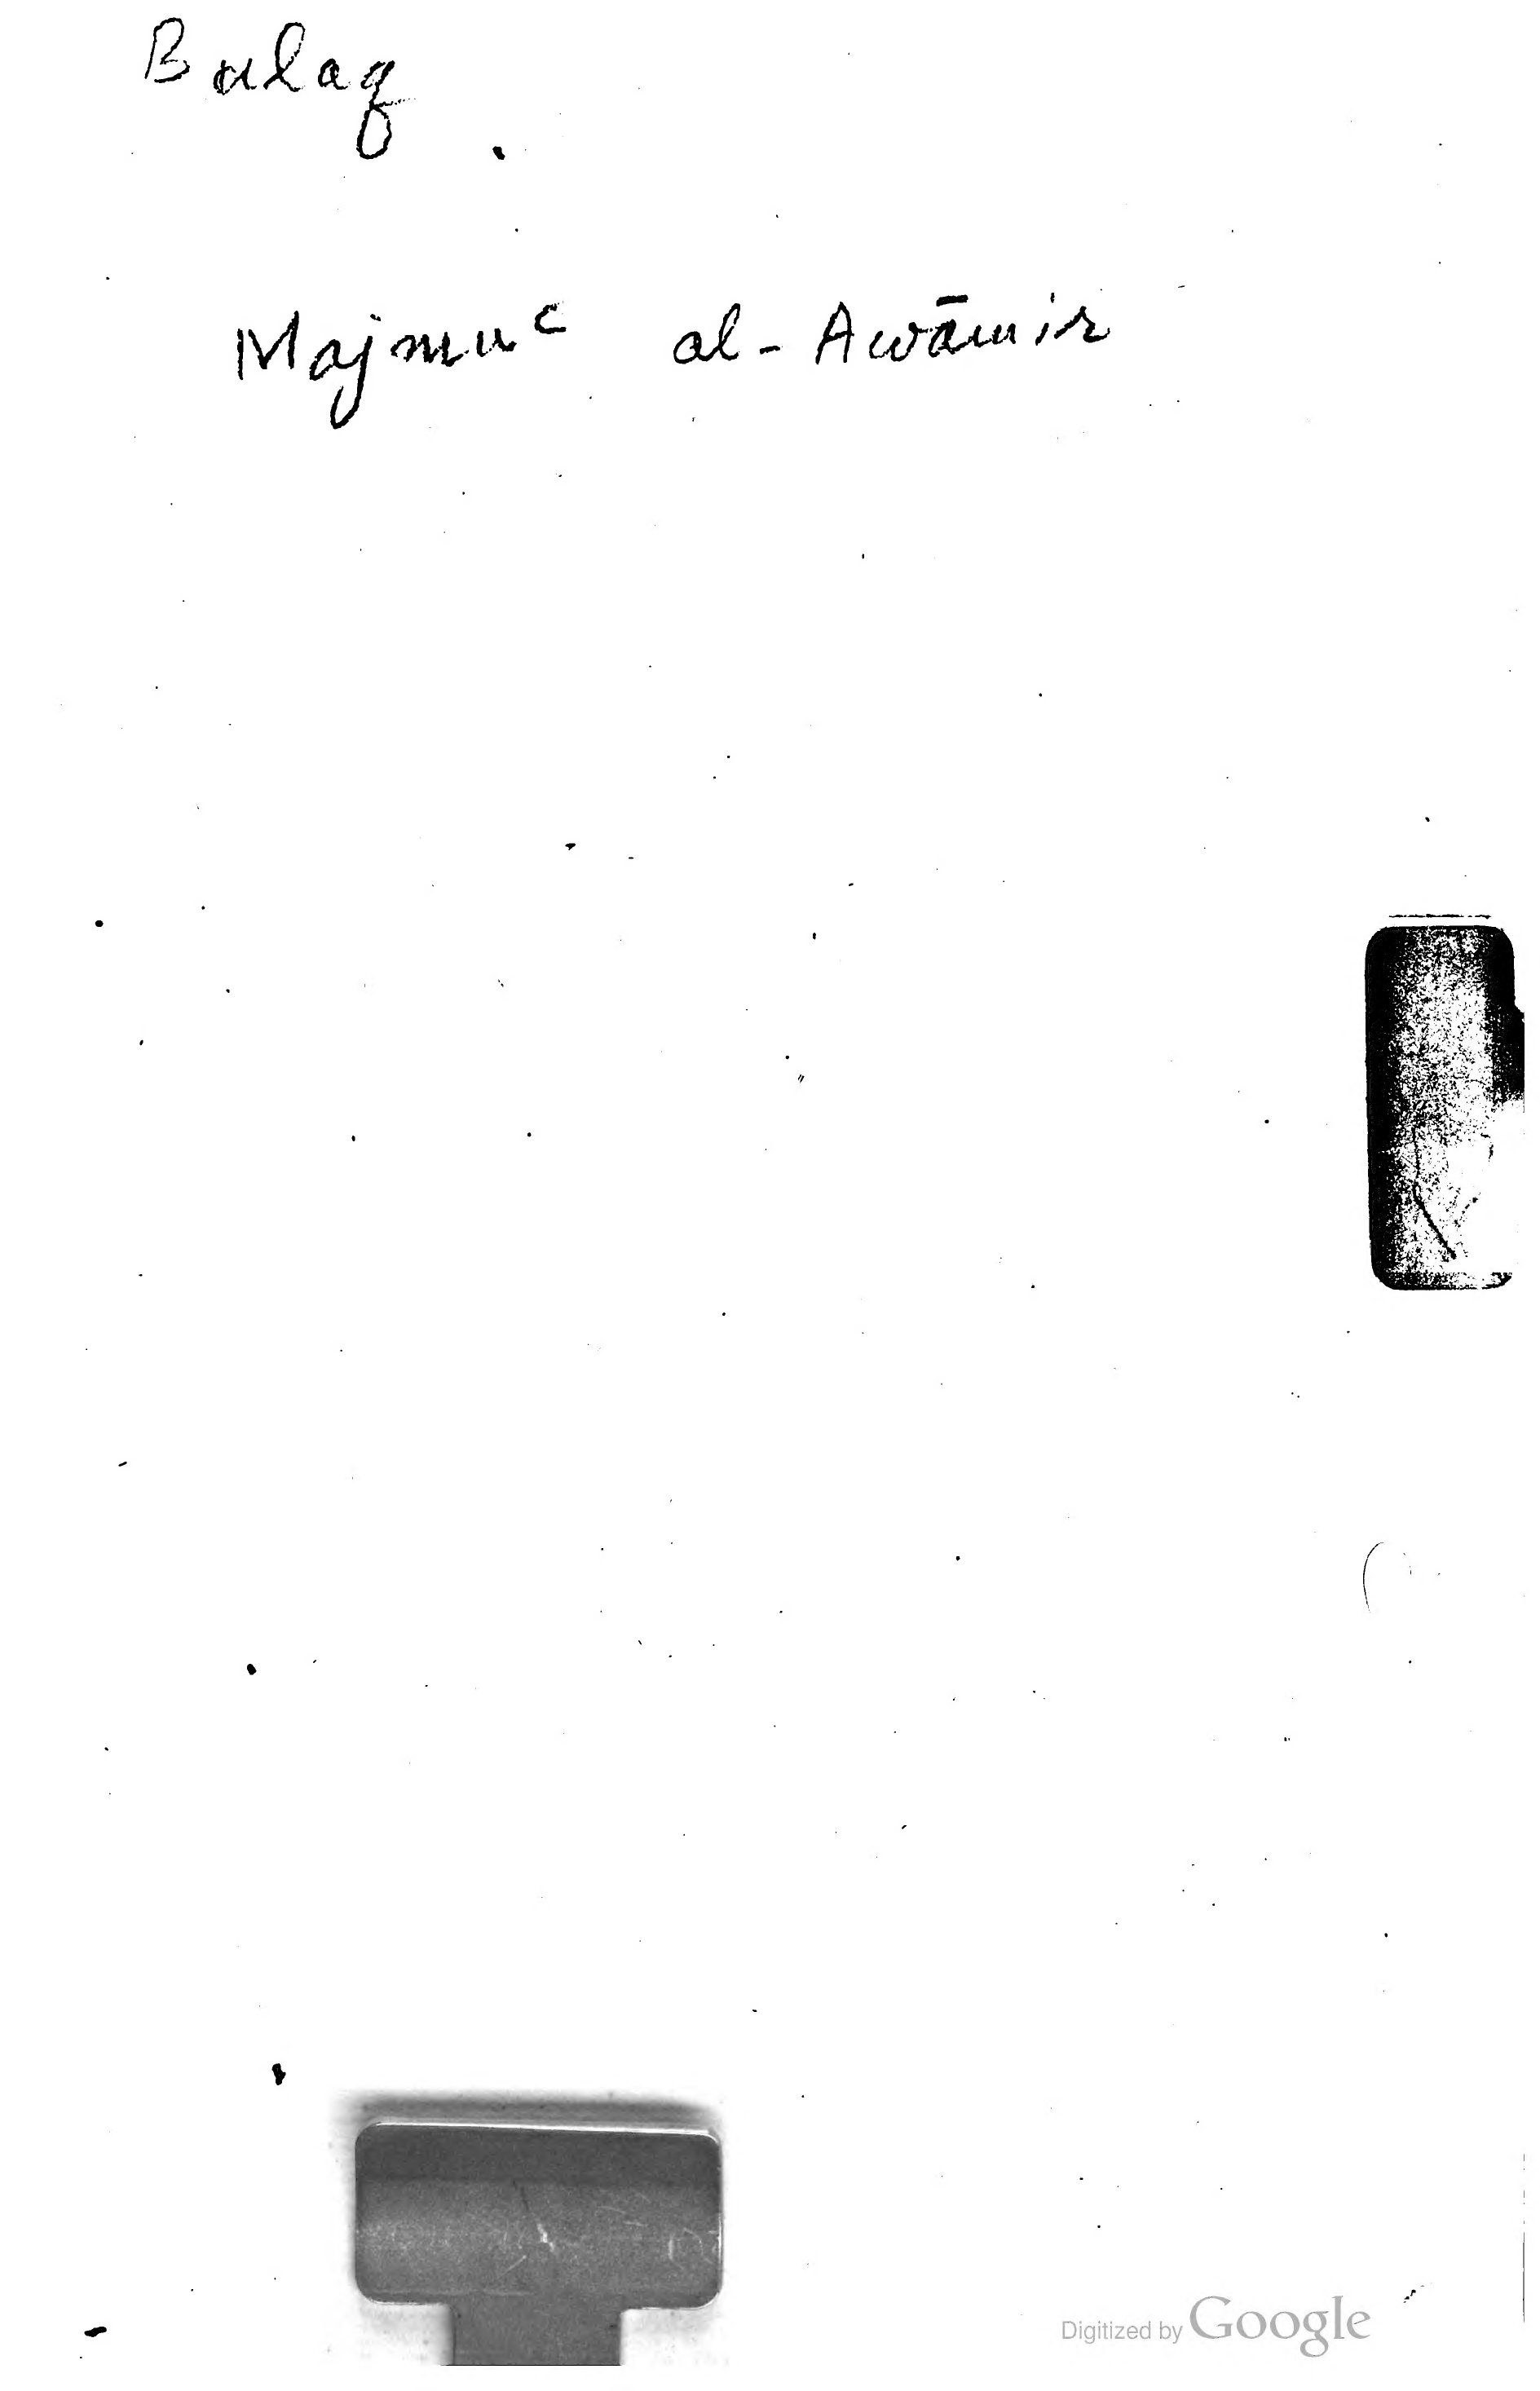 Bulaq
Majmuᶜ al-Awāmir
Digitized by Google